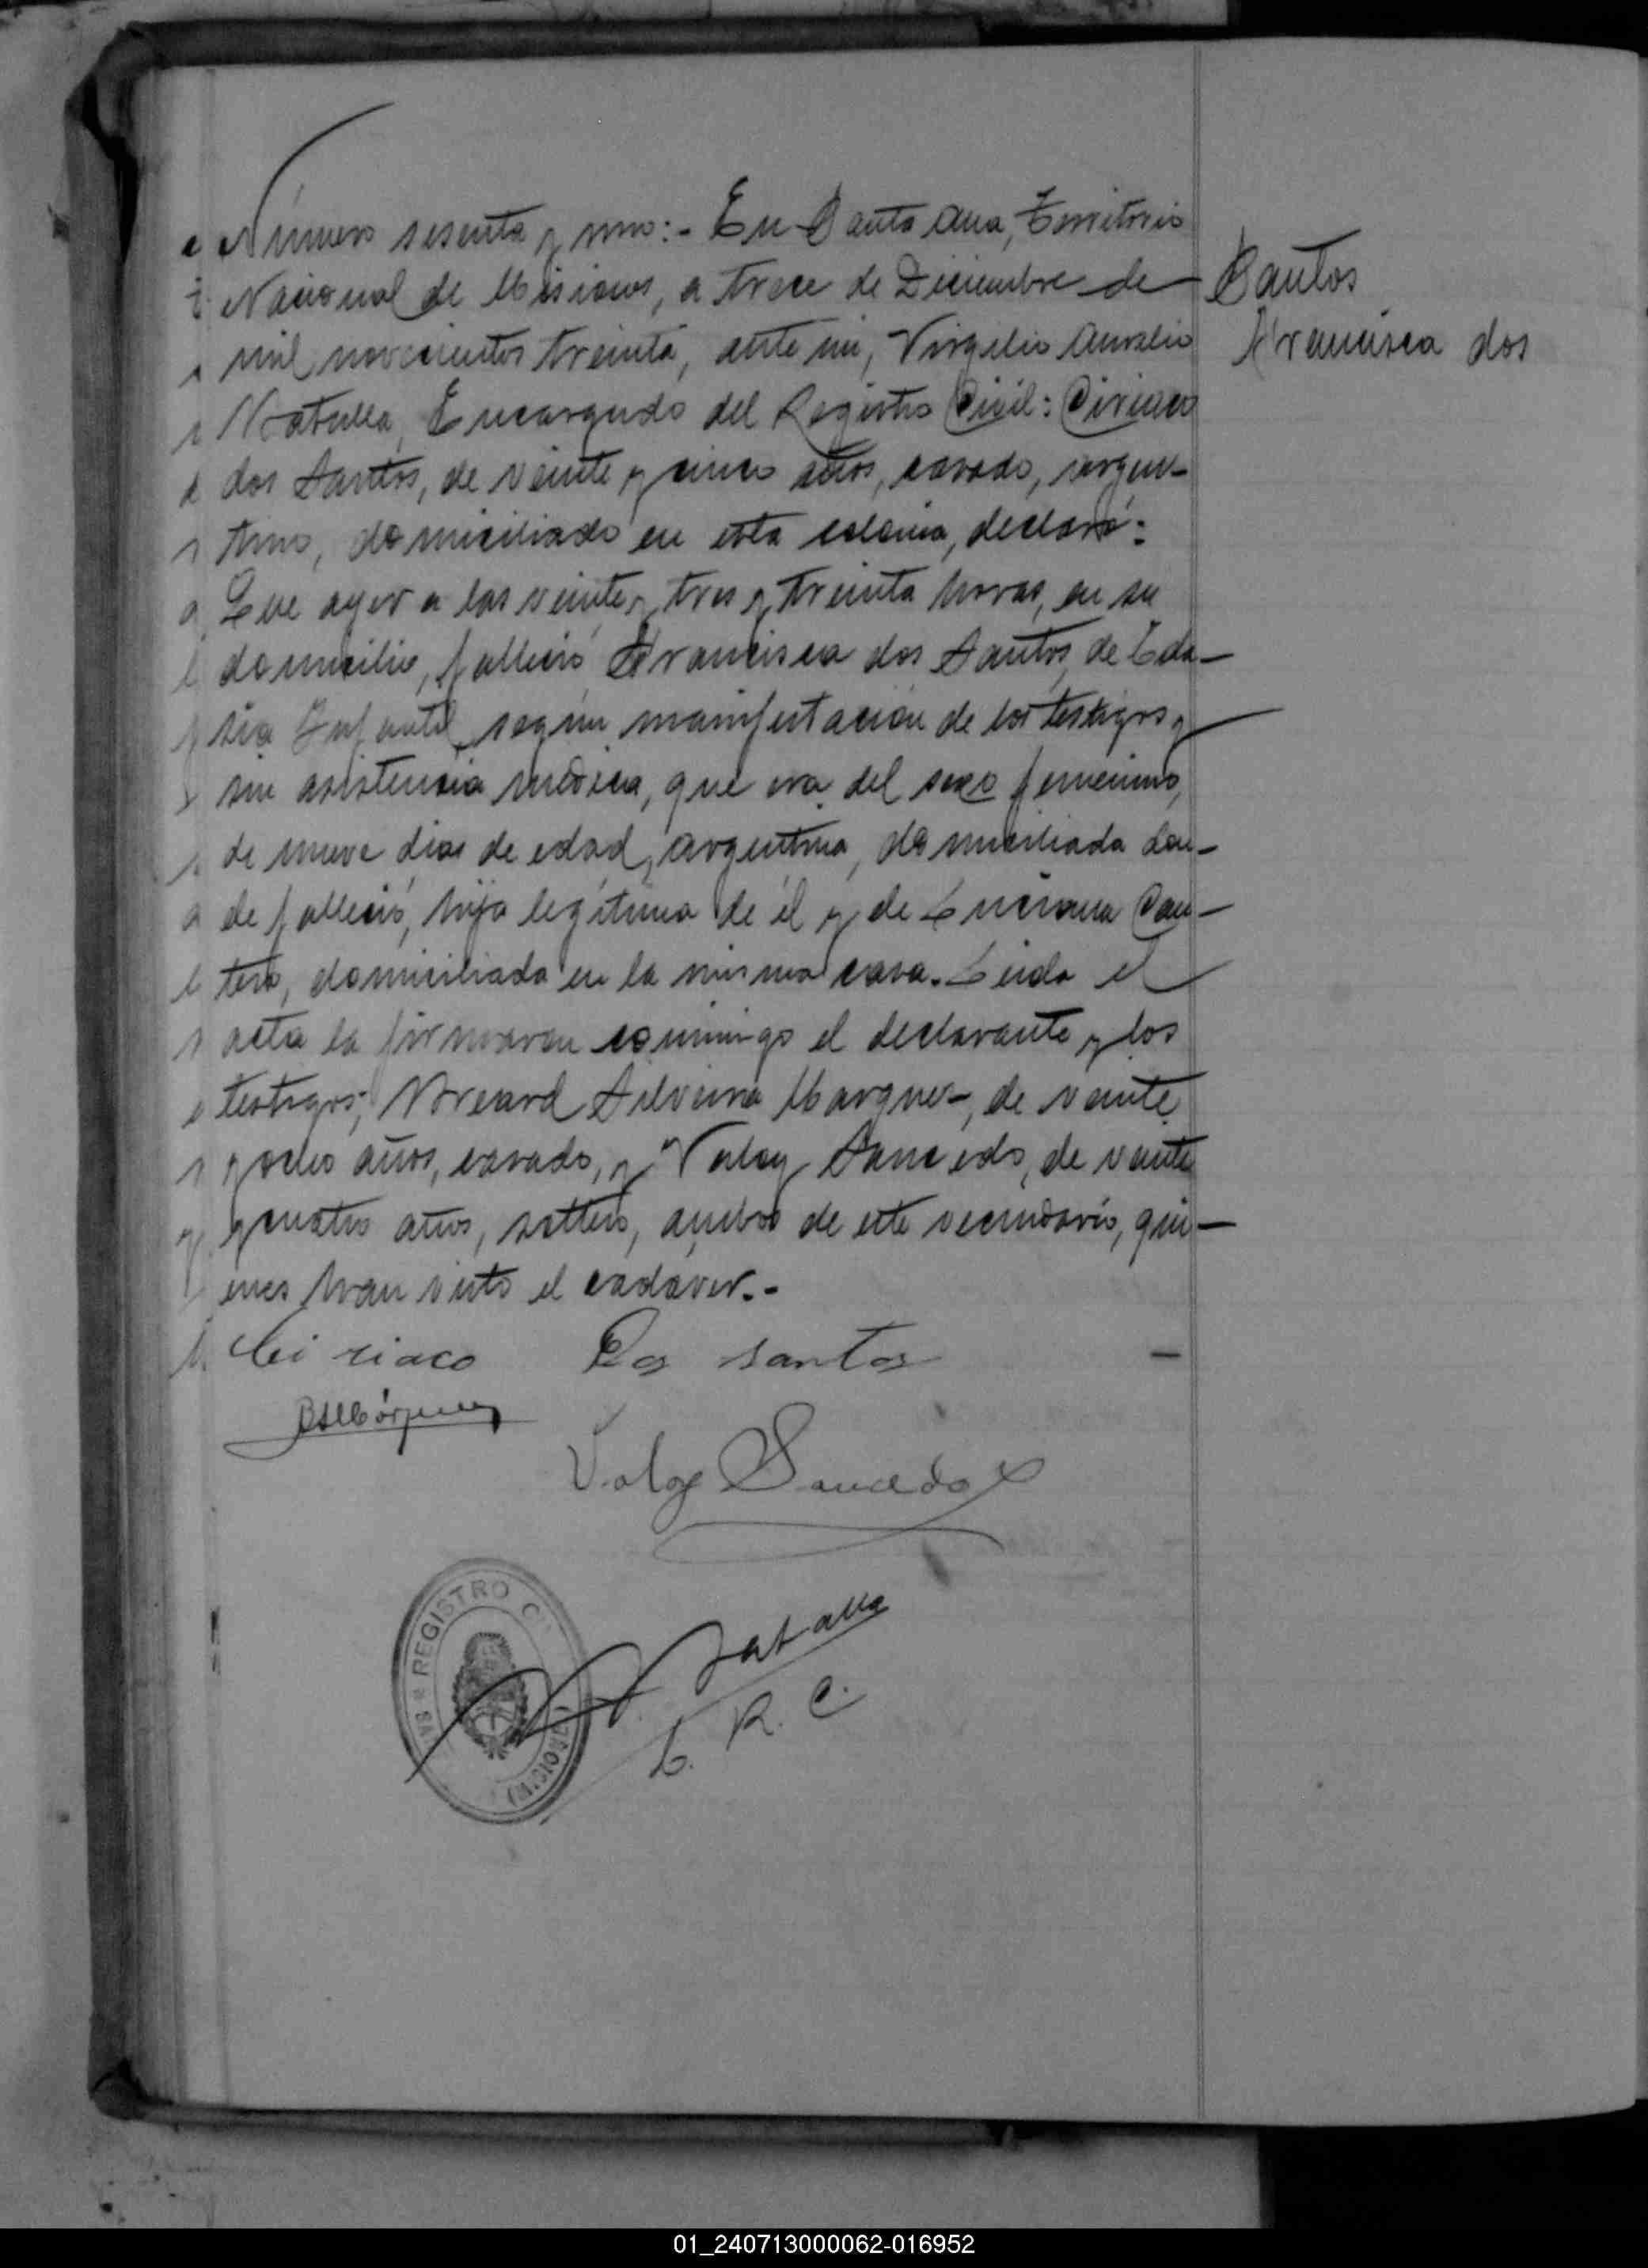 Número sesenta y uno:- En Santa Ana, Territorio
Nacional de Misiones, a trece de Diciembre de
Santos
mil novecientos treinta, ante mi, Virgilio Aurelio
Francisca dos
Batalla, Encargado del Registro Civil: Ciriaco
dos Santos, de veinte y cinco años, casado, argen-
tino, domiciliado en esta colonia, declaró:
Que ayer a las veinte y tres y treinta horas, en su
domicilio, falleció Francisca dos Santos, de
Infantil, según manifestación de los testigos y
sin asistencia médica, que era del sexo femenino,
de nueve dias de edad, argentina, domiciliada don-
de falleció, hija legítima de él y de Luciana Can-
tero, domiciliada en la misma casa. Leida el
acta la firmaron conmigo el declarante y los
testigos; Silveira Marques, de veinte
y ocho años, casado, y Valoy Saucedo, de veinte
y cuatro años, soltero, ambos de este vecindario, qui-
enes han visto el cadáver.-
Ciriaco Dos santos
Valoy Saucedo
REGISTRO
(MISIONES)
Batalla
E. R. C.
01_240713000062-016952